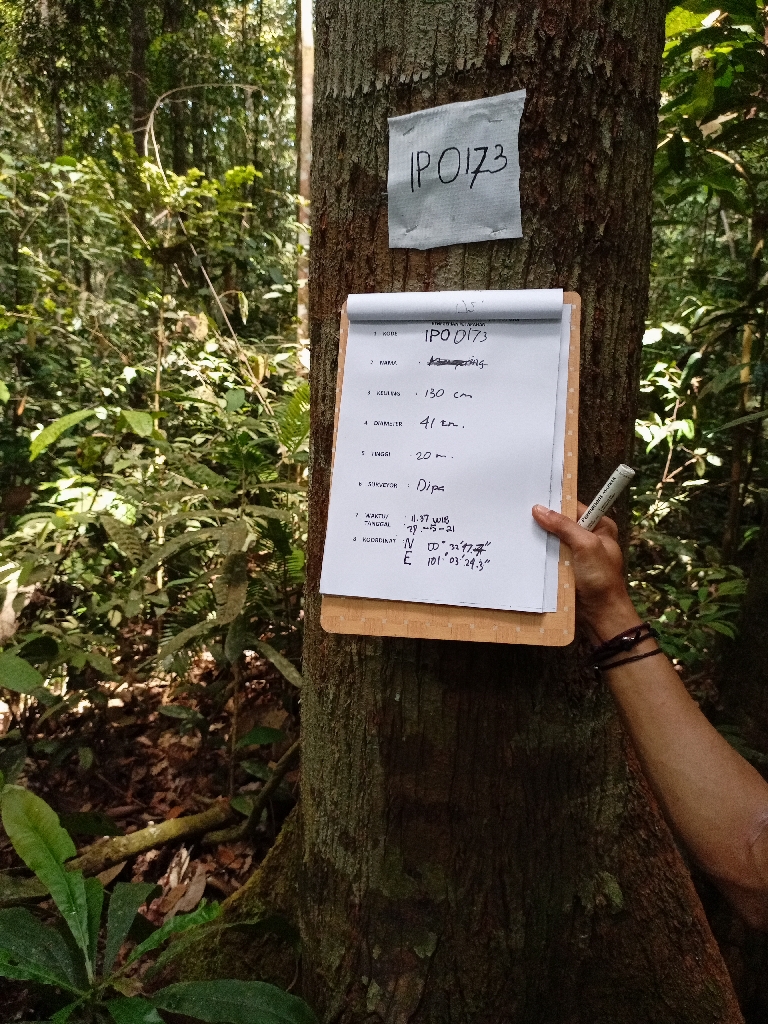 IPO0173
1 KODE IPO0173
2 NAMA :
3 KELILING : 130 cm
4 DIAMETER 41 cm.
5 TINGGI : 20 m.
6 SURVEYOR : Dipa
7 WAKTU/ : 11.37 WIB
TANGGAL 29 -5-21
8 KOORDINAT : N 00° 32'
E 101° 03' 29.3"